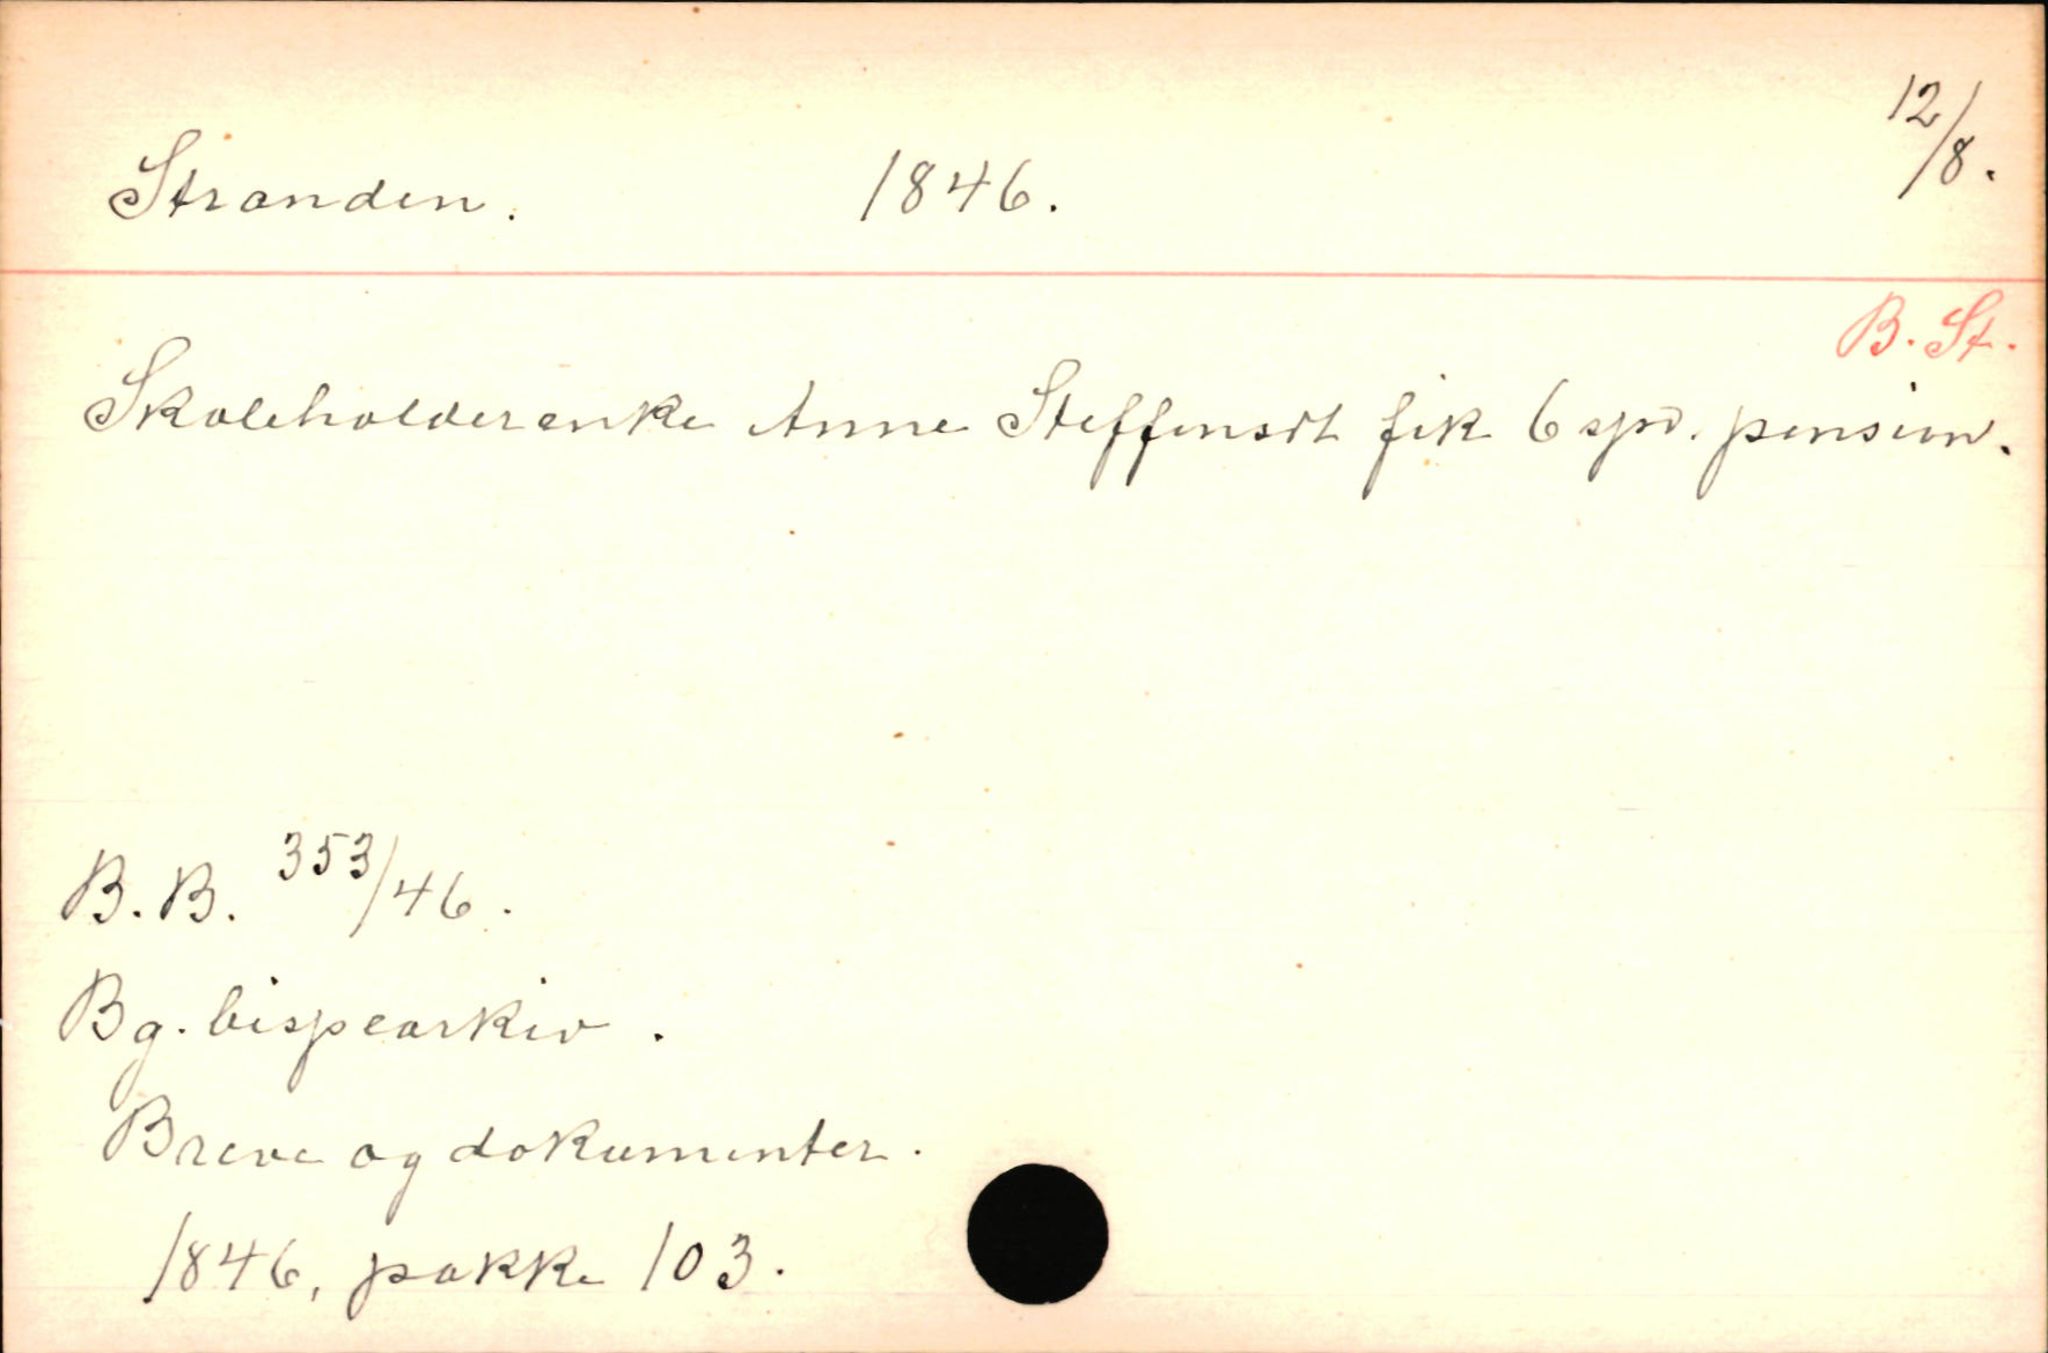 Stranden. 1846. 12/8.
B. St.
Skoleholderenke Anne Steffensdt fik 6 spd. pension.
B. B. 353/46.
Bg. bispearkiv.
Breve og dokumenter.
1846, pakke 103.